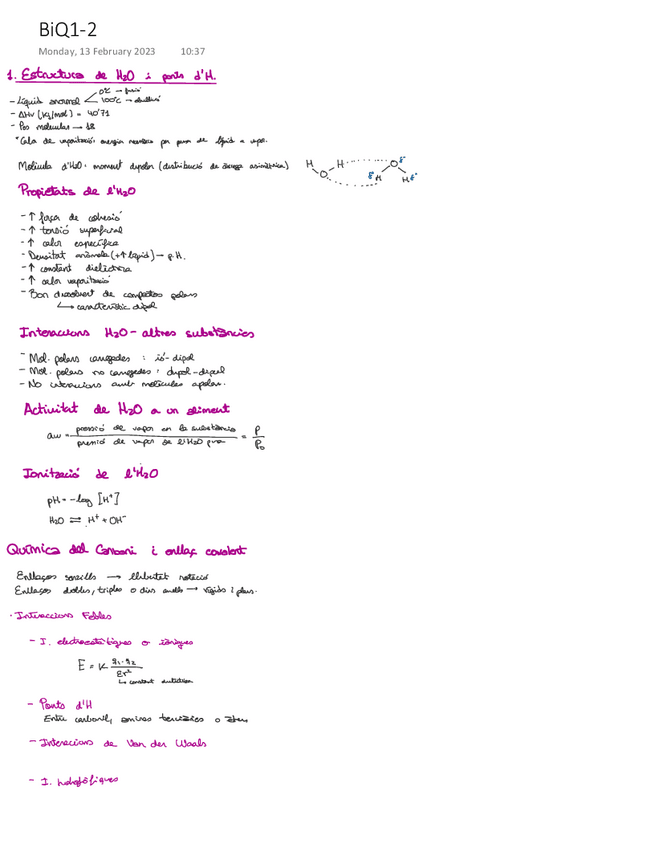 BiQ1-2
Monday, 13 February 2023 10:37
1. Estructura de H₂O i ponts d'H.
0ºC → fusió
- Líquid anormal 100ºC → ebullició
- ΔHv (kJ/mol) = 40'71
- Pes molecular → 18
*Calor de vaporització: energia necessària per passar de líquid a vapor.
Molècula d'H₂O: moment dipolar (distribució de càrrega asimètrica)
H H O δ⁻
O δ⁺ H H δ⁺
Propietats de l'H₂O
- ↑ força de cohesió
- ↑ tensió superficial
- ↑ calor específica
- Densitat anòmala (+↑ líquid) → p.H.
- ↑ constant dielèctrica
- ↑ calor vaporització
- Bon dissolvent de compostos polars
↳ característic dipol
Interaccions H₂O - altres substàncies
- Mol. polars carregades : ió-dipol
- Mol. polars no carregades : dipol-dipol
- No interaccions amb molècules apolars.
Activitat de H₂O a un aliment
aw = pressió de vapor en la substància / pressió de vapor de l'H₂O pura = P / P₀
Ionització de l'H₂O
pH = -log [H⁺]
H₂O ⇌ H⁺ + OH⁻
Química del Carboni i enllaç covalent
Enllaços senzills → llibertat rotació
Enllaços dobles, triples o dins anells → rígids i plans.
· Interaccions Febles
- I. electrostàtiques o iòniques
E = K q₁·q₂ / εr²
↳ constant dielèctrica
- Ponts d'H
Entre carbonil, amines terciàries o èters
- Interaccions de Van der Waals
- I. hidrofòbiques